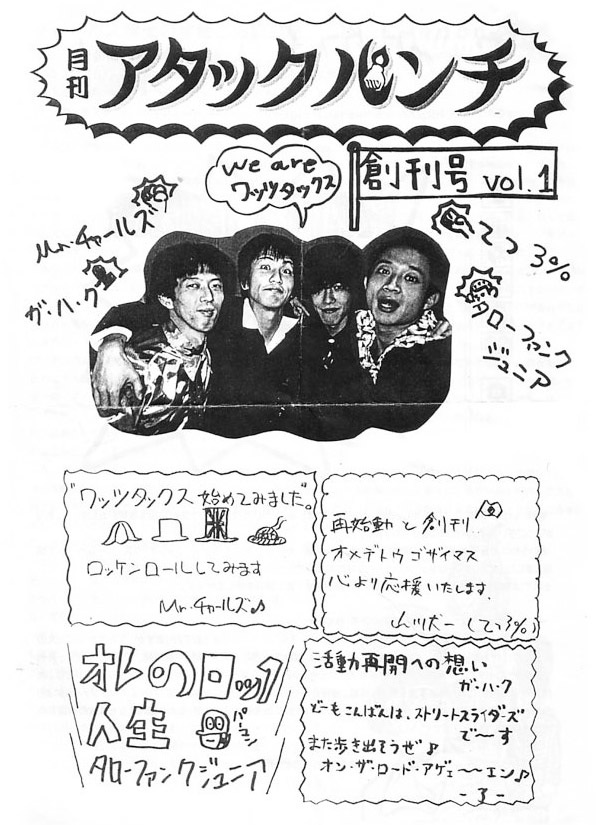 月刊
アタックパンチ
We are
ワッツタックス
創刊号 vol.1
Mr.チャールズ
ガ・ハ・ク
てつ3%
タローファンク
ジュニア
"ワッツタックス 始めてみました"。
ロッケンロールしてみます
Mr.チャールズ♪
再始動と創刊
オメデトウゴザイマス
心より応援いたします.
(てつ3%)
オレのロック
人生
タローファンクジュニア
活動再開への想い
ガ・ハ・ク
どーもこんばんは、ストリートスライダーズ
で〜す
また歩き出そうぜ♪
オン・ザ・ロード・アゲェ〜〜エン♪